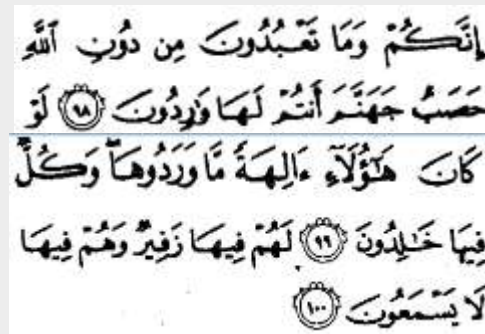 إِنَّكُمْ وَمَا تَعْبُدُونَ مِن دُونِ ٱللَّهِ
حَصَبُ جَهَنَّمَ أَنتُمْ لَهَا وَٰرِدُونَ ۝٩٨ لَوْ
كَانَ هَٰٓؤُلَآءِ ءَالِهَةً مَّا وَرَدُوهَا ۖ وَكُلٌّ
فِيهَا خَٰلِدُونَ ۝٩٩ لَهُمْ فِيهَا زَفِيرٌ وَهُمْ فِيهَا
لَا يَسْمَعُونَ ۝١٠٠